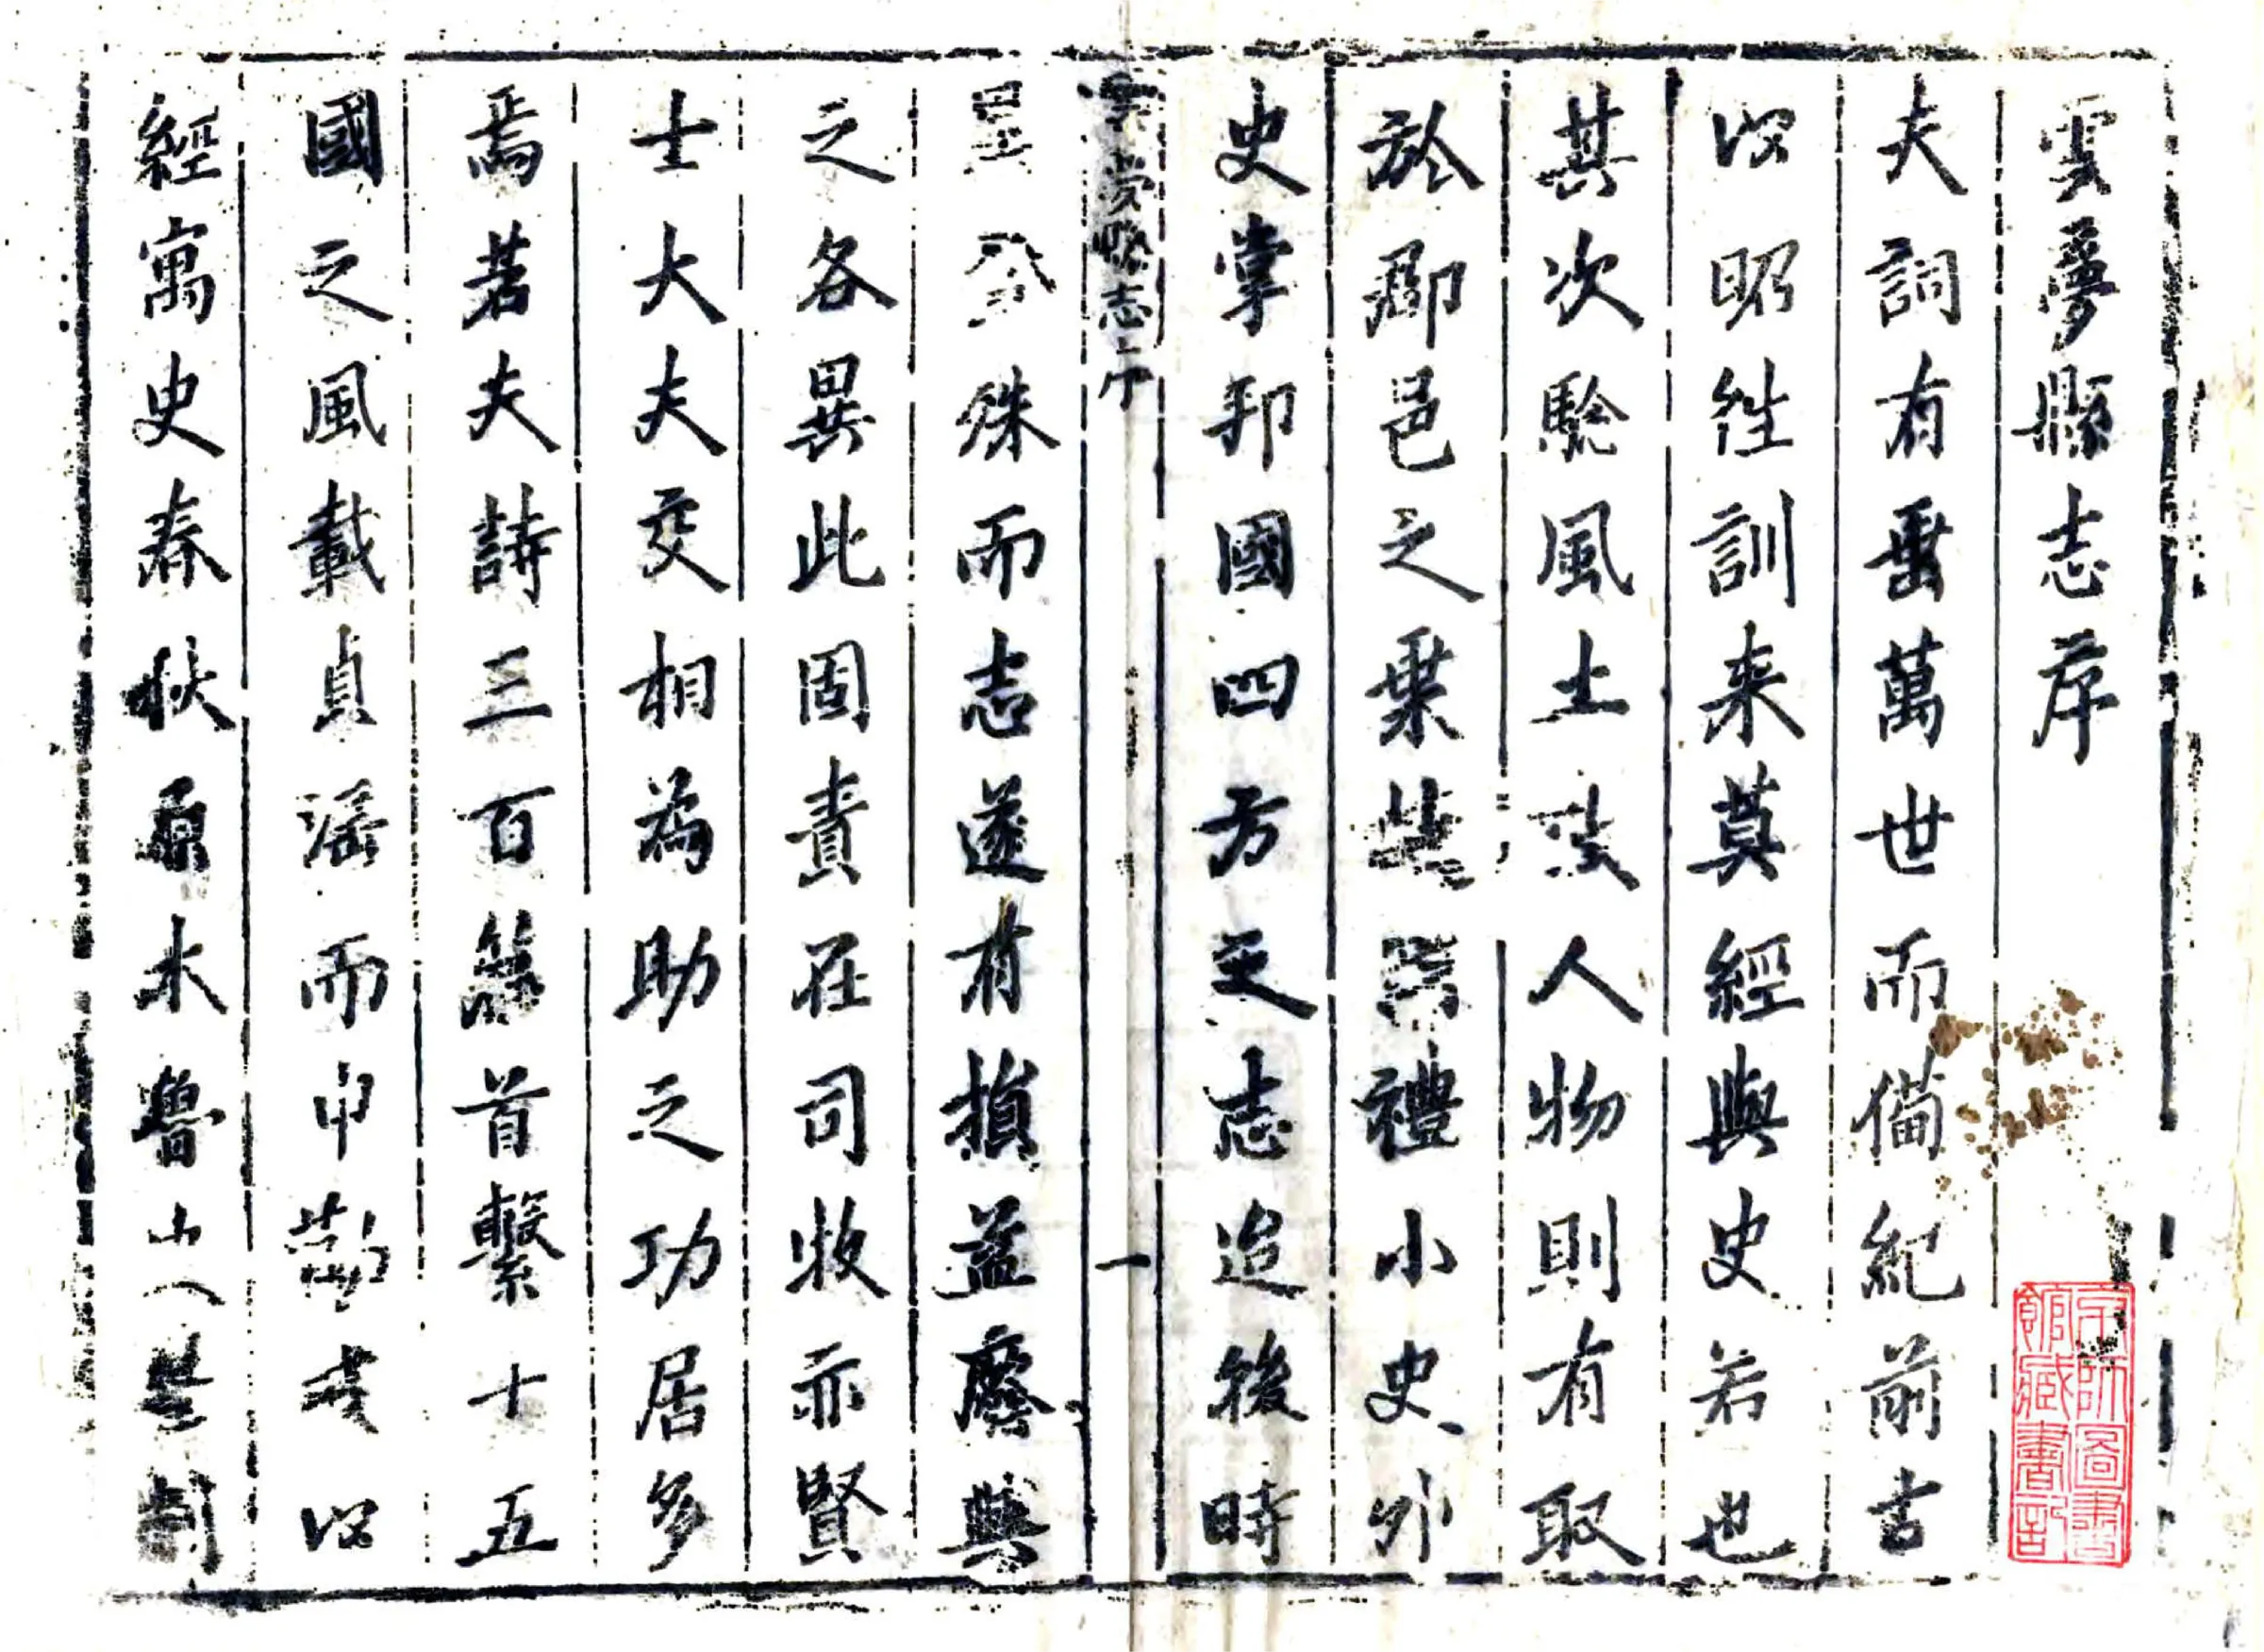 雲夢縣志序
夫詞有垂萬世而備紀前古
以昭徃訓来莫經與史若也
其次驗風土考人物則有取
於郡邑之乗禮小史外
史掌邦國四方之志迨後時
雲夢縣志序
一
星分殊而志遂有損益廢興
之各異此固責在司牧亦賢
士大夫交相為助之功居多
焉若夫詩三百篇首繫十五
國之風載貞淫而申勸戒以
經寓史春秋原本魯史筆削
京師圖書館藏書記